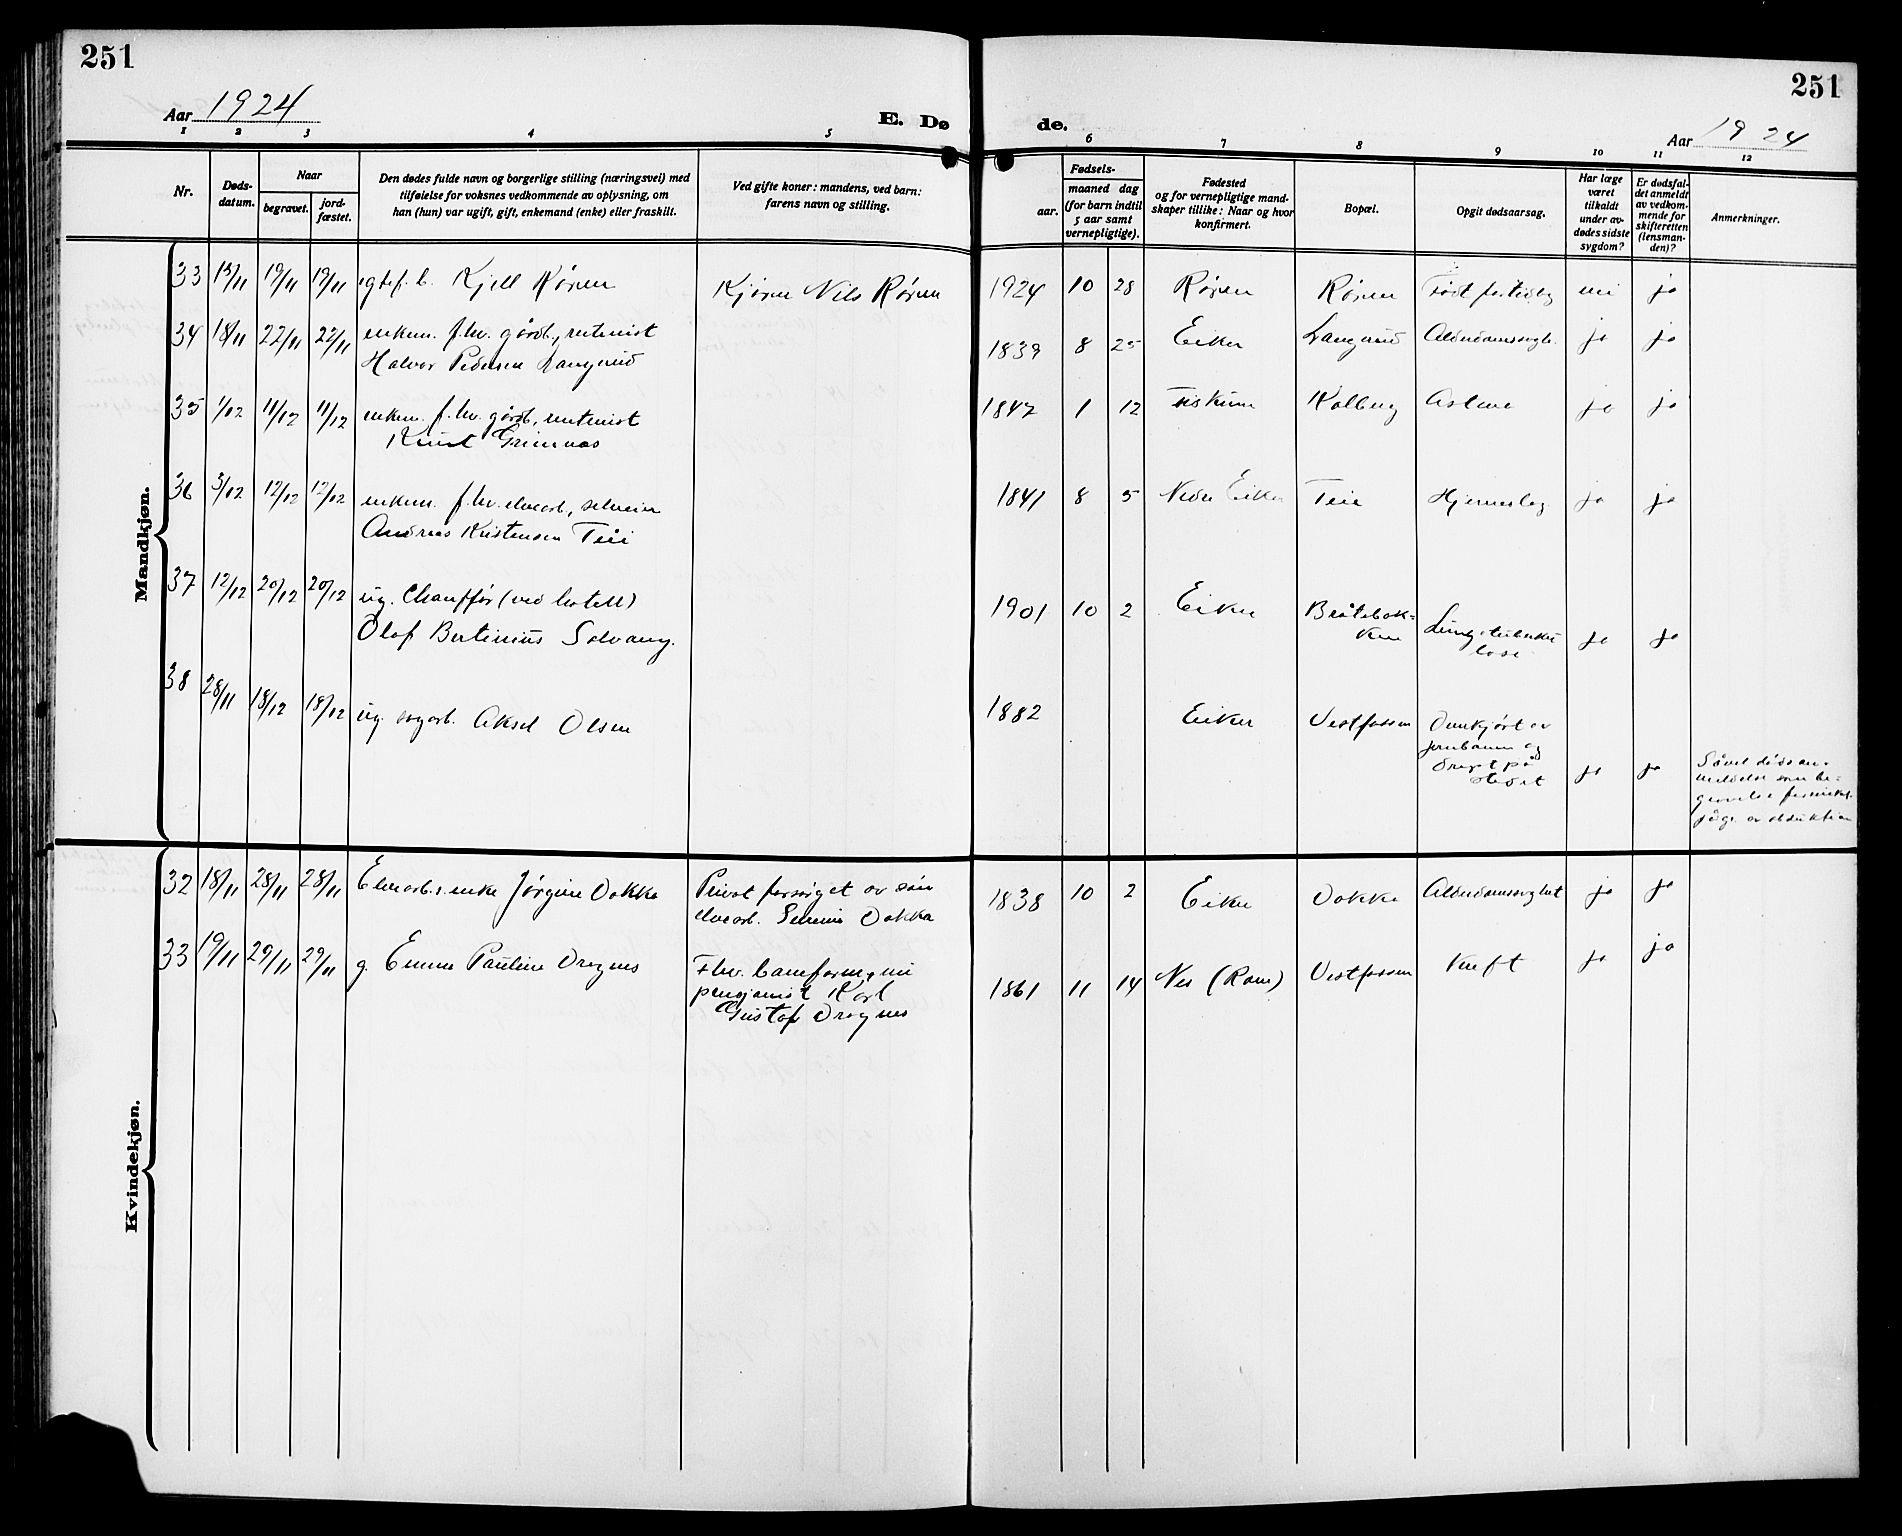 251
251
Aar 1924
E. Dø
de.
Aar 1924
1 2 3 4 5 6 7 8 9 10 11 12
Nr.
Døds-
datum.
Naar
begravet.
jord-
fæstet.
Den dødes fulde navn og borgerlige stilling (næringsvei) med
tilføielse for voksnes vedkommende av oplysning, om
han (hun) var ugift, gift, enkemand (enke) eller fraskilt.
Ved gifte koner: mandens, ved barn:
farens navn og stilling.
Fødsels-
aar.
maaned dag
(for barn indtil
5 aar samt
vernepligtige).
Fødested
og for vernepligtige mand-
skaper tillike: Naar og hvor
konfirmert.
Bopæl.
Opgit dødsaarsag.
Har læge
været
tilkaldt
under av-
dødes sidste
sygdom?
Er dødsfal-
det anmeldt
av vedkom-
mende for
skifteretten
(lensman-
den)?
Anmerkninger.
Mandkjøn.
33 13/11 19/11 19/11 egtef. b. Kjell Røren Kjører Nils Røren 1924 10 28 Røren Røren Født fortidlig nei ja
34 18/11 22/11 22/11 enkem. f.hv. gårdb., rentenist
Halvor Pedersen Langerud 1839 8 25 Eiker Langerud Alderdomssvagh. ja ja
35 1/12 11/12 11/12 enkem. f.hv. gårdb., rentenist
Knut Grimnæs 1847 1 12 Fiskum Kolberg Astma ja ja
36 3/12 12/12 12/12 enkem. f.hv. elvearb., selveier
Andreas Kristensen Teie 1841 8 5 Nedre Eiker Teie Hjerneslag ja ja
37 12/12 20/12 20/12 ug. Chauffør (ved hotell)
Olaf Bertinius Solvang. 1901 10 2 Eiker Bråtebak-
ken Lungetuberku
lose ja ja
38 28/11 18/12 18/12 ug. sagarb. Aksel Olsen 1882 Eiker Vestfossen Overkjørt av
jernbanen og
drept på
stedet ja ja
Såvel dødsan-
meldelse som be-
gravelse forsinket
pågr. av obduktion
Kvindekjøn.
32 18/11 28/11 28/11 Elvearb.s enke Jørgine Dokka Privat forsørget av søn
elvearb. Severin Dokka 1838 10 2 Eiker Dokka Alderdomssvaghet ja ja
33 19/11 29/11 29/11 g. Emma Pauline Dragnes Fhv. baneform., nu
pensjonist Karl
Gustaf Dragnes 1861 11 14 Nes (Rom) Vestfossen Kreft ja ja